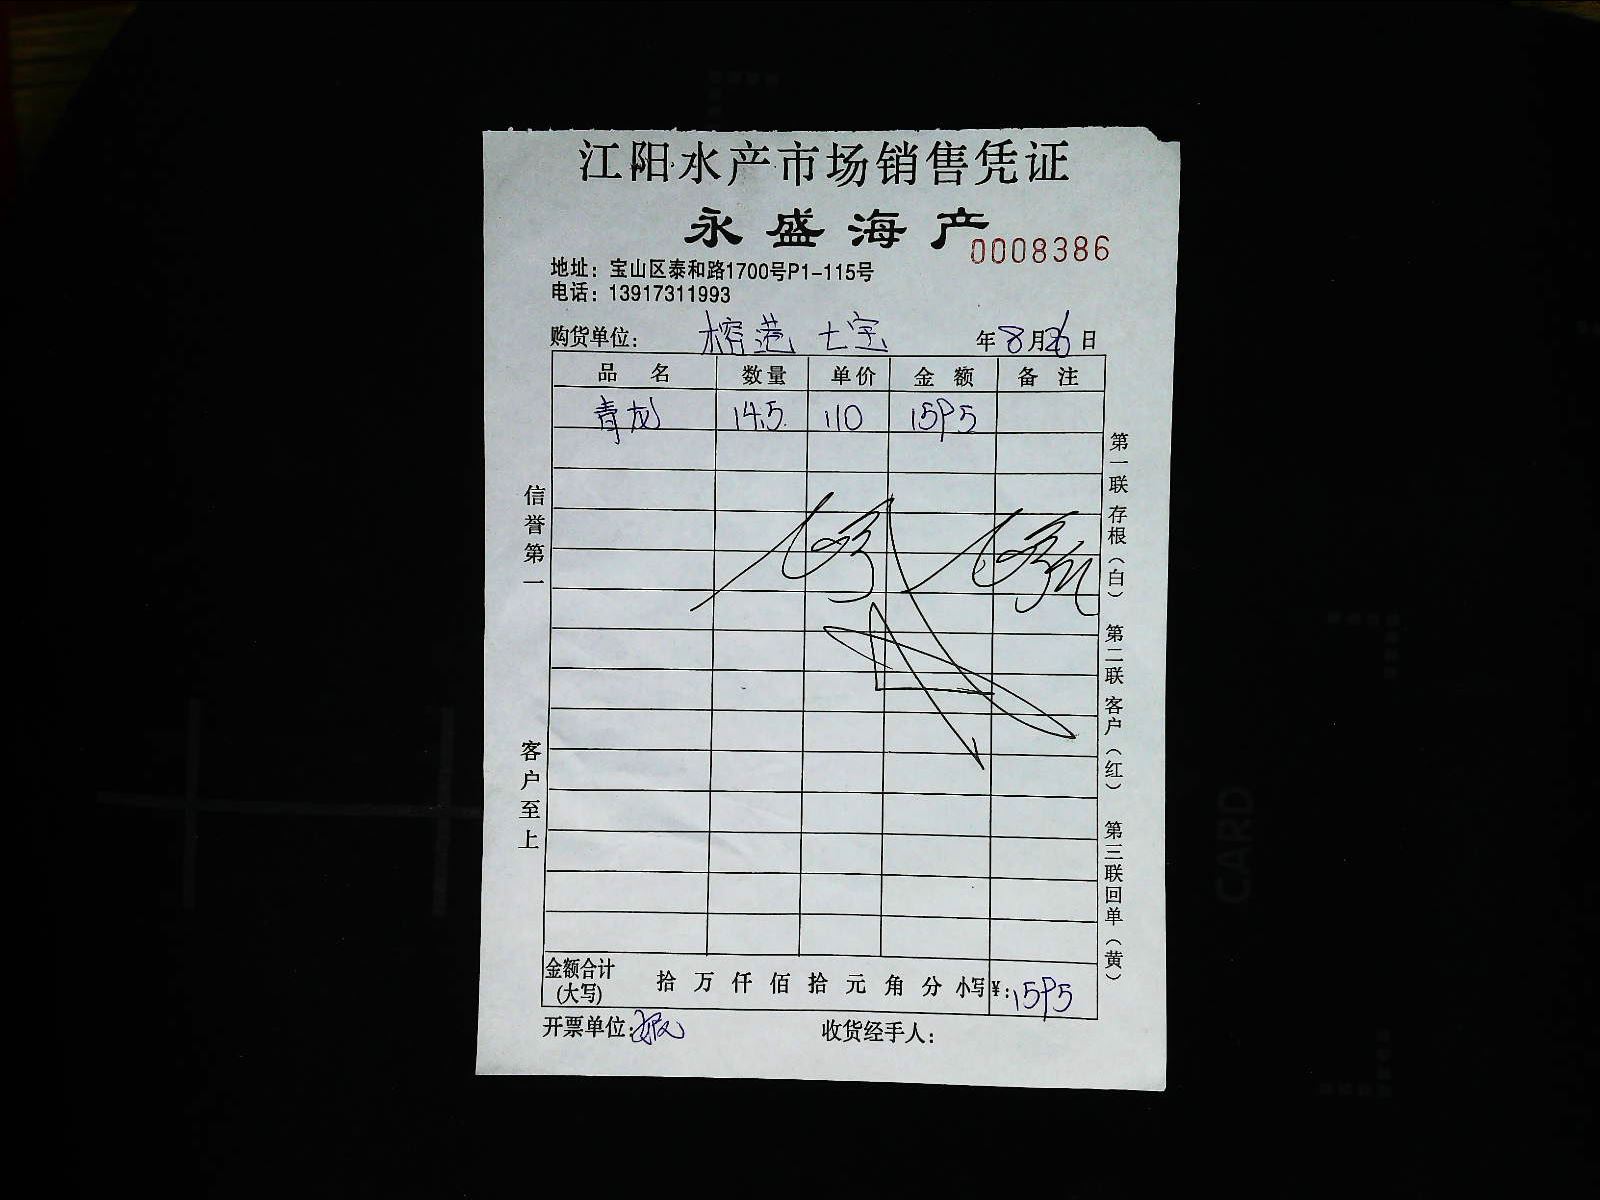 江阳水产市场销售凭证
永盛海产
0008386
地址：宝山区泰和路1700号P1-115号
电话：13917311993
购货单位： 榕港 七宝 年8月26日
品名 数量 单价 金额 备注
青龙 14.5 110 1595
信誉第一
客户至上
第一联存根（白） 第二联客户（红） 第三联回单（黄）
金额合计(大写) 拾 万 仟 佰 拾 元 角 分 小写¥:1595
开票单位: 收货经手人：
CARD